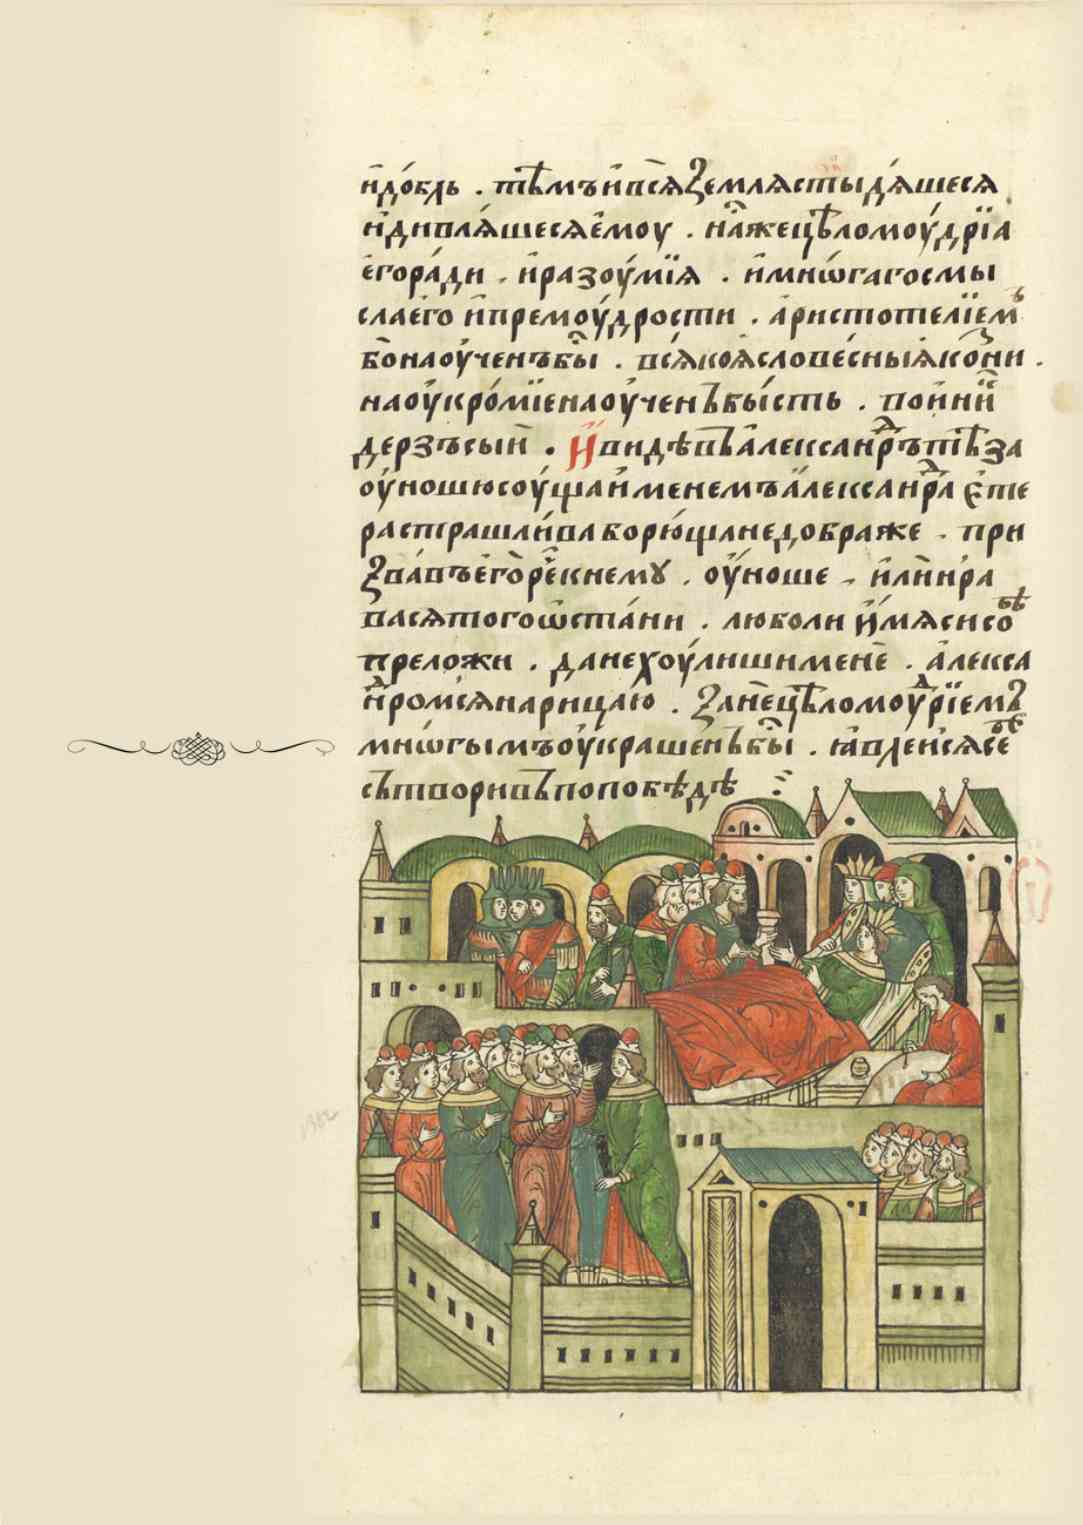 и҆до́бль . тѣ́мъ и҆ всѧ̀ землѧ̀ стыдѧ́шесѧ
и҆ дивлѧ́шесѧ є҆моу̀ . наⷩ҇ѧже цѣломоу́дрїа
є҆го ра́ди . и҆ разоу́мїѧ . и҆ мнѡ́гаго смы
сла є҆го̀ и҆ премоу́дрости . а҆ристотелїемъ
бо наоу́ченъ бы̀ . всѧ́коѧ слове́сныѧ ко́зни .
наоу҆кро́мїе наоу́ченъ бы́сть . вои́нїй
дерзъ сый . И҆ видѣвъ а҆леѯанⷣръ тѣ́ за
оу́ношю соу́ща и҆менемъ а҆леѯанⷣра є҆те
растрашли́ва борю́щанедобра же . при
зва́въ є҆го̀ реⷱ҇ к нему . оу҆́ноше . и҆ли нра
ва сѧ тогѡ ѡ҆ста́ни . любо ли и҆́мѧ си собѣ
преложи . да не хоу́лиши менѐ . а҆леѯа
нⷣром сѧ нарицаю . занѐ цѣломоуⷣрїемъ
мнѡ́гымъ оу҆крашенъ бы̀ . ꙗ҆влей сѧ себѐ
сътвори въ по побѣ́дѣ